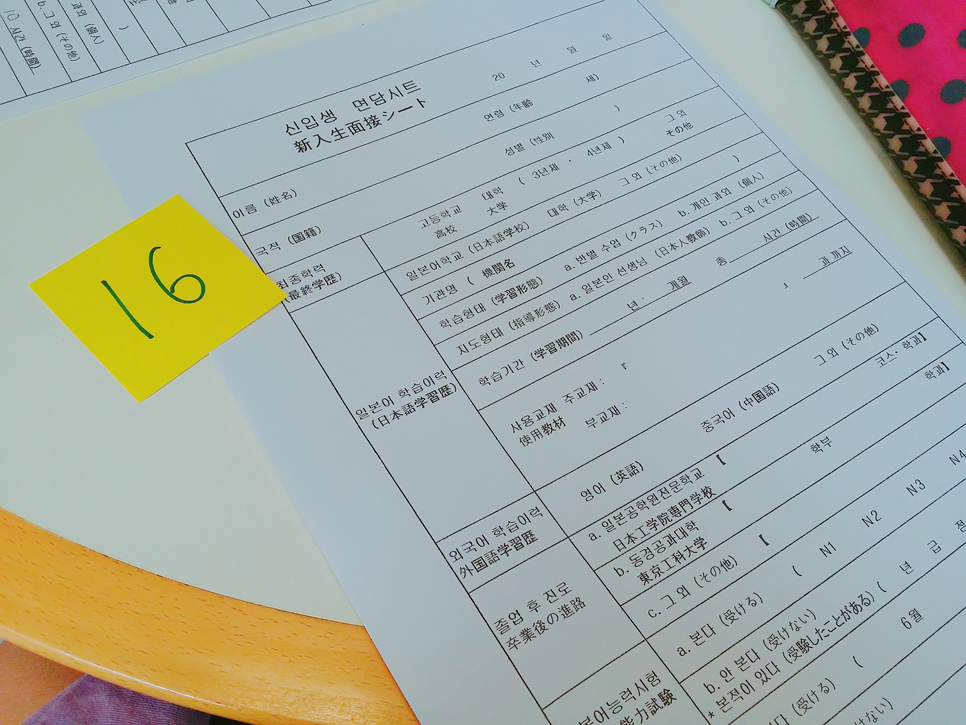 신입생 면담시트
新入生面接シート
20 년 월 일
이름 (姓名) 연령 (年齢 세)
국적 (国籍) 성별 (性別 )
최종학력
(最終学歴)
고등학교 대학 ( 3년제 · 4년제 ) 그 외
高校 大学 その他
일본어 학습이력
(日本語学習歴)
일본어학교 (日本語学校) 대학 (大学) 그 외 (その他)
기관명 ( 機関名 )
학습형태 (学習形態) a. 반별 수업 (クラス) b. 개인 과외 (個人)
지도형태 (指導形態) a. 일본인 선생님 (日本人教師) b. 그 외 (その他)
학습기간 (学習期間) 년 · 개월 총 시간 (時間)
사용교재 주교재 : 『 』 과 까지
使用教材 부교재 :
외국어 학습이력
外国語学習歴
영어 (英語) 중국어 (中国語) 그 외 (その他)
졸업 후 진로
卒業後の進路
a. 일본공학원전문학교 【 코스· 학과】
日本工学院専門学校
b. 동경공과대학 【 학부 학과】
東京工科大学
c. 그 외 (その他) 【
본어능력시험
能力試験
a. 본다 (受ける) ( N1 N2 N3 N4
b. 안 본다 (受けない)
* 본적이 있다 (受験したことがある) ( 년 급
본다 (受ける) ( 6월
16